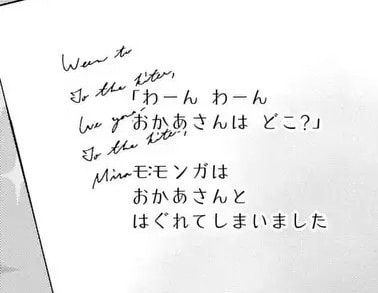 To the
「わーん わーん
おかあさんは どこ?」
To the
モモンガは
おかあさんと
はぐれてしまいました